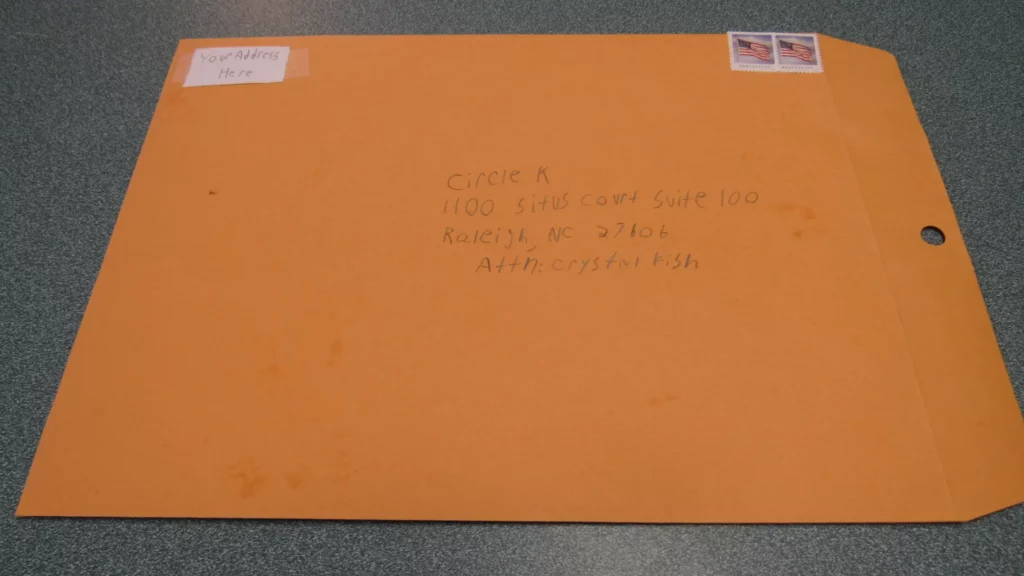 Your Address
Here
Circle K
1100 Situs Court Suite 100
Raleigh, NC 27606
Attn: Crystal Fish